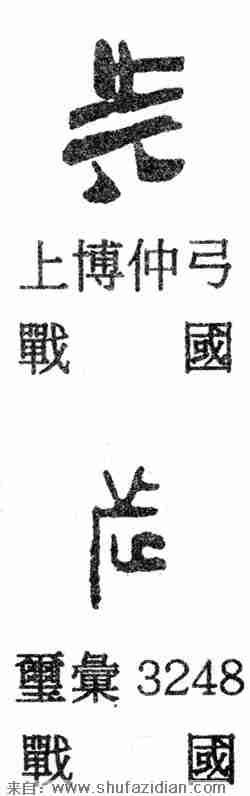 上博仲弓
戰國
璽彙3248
戰國
来自：www.shufazidian.com